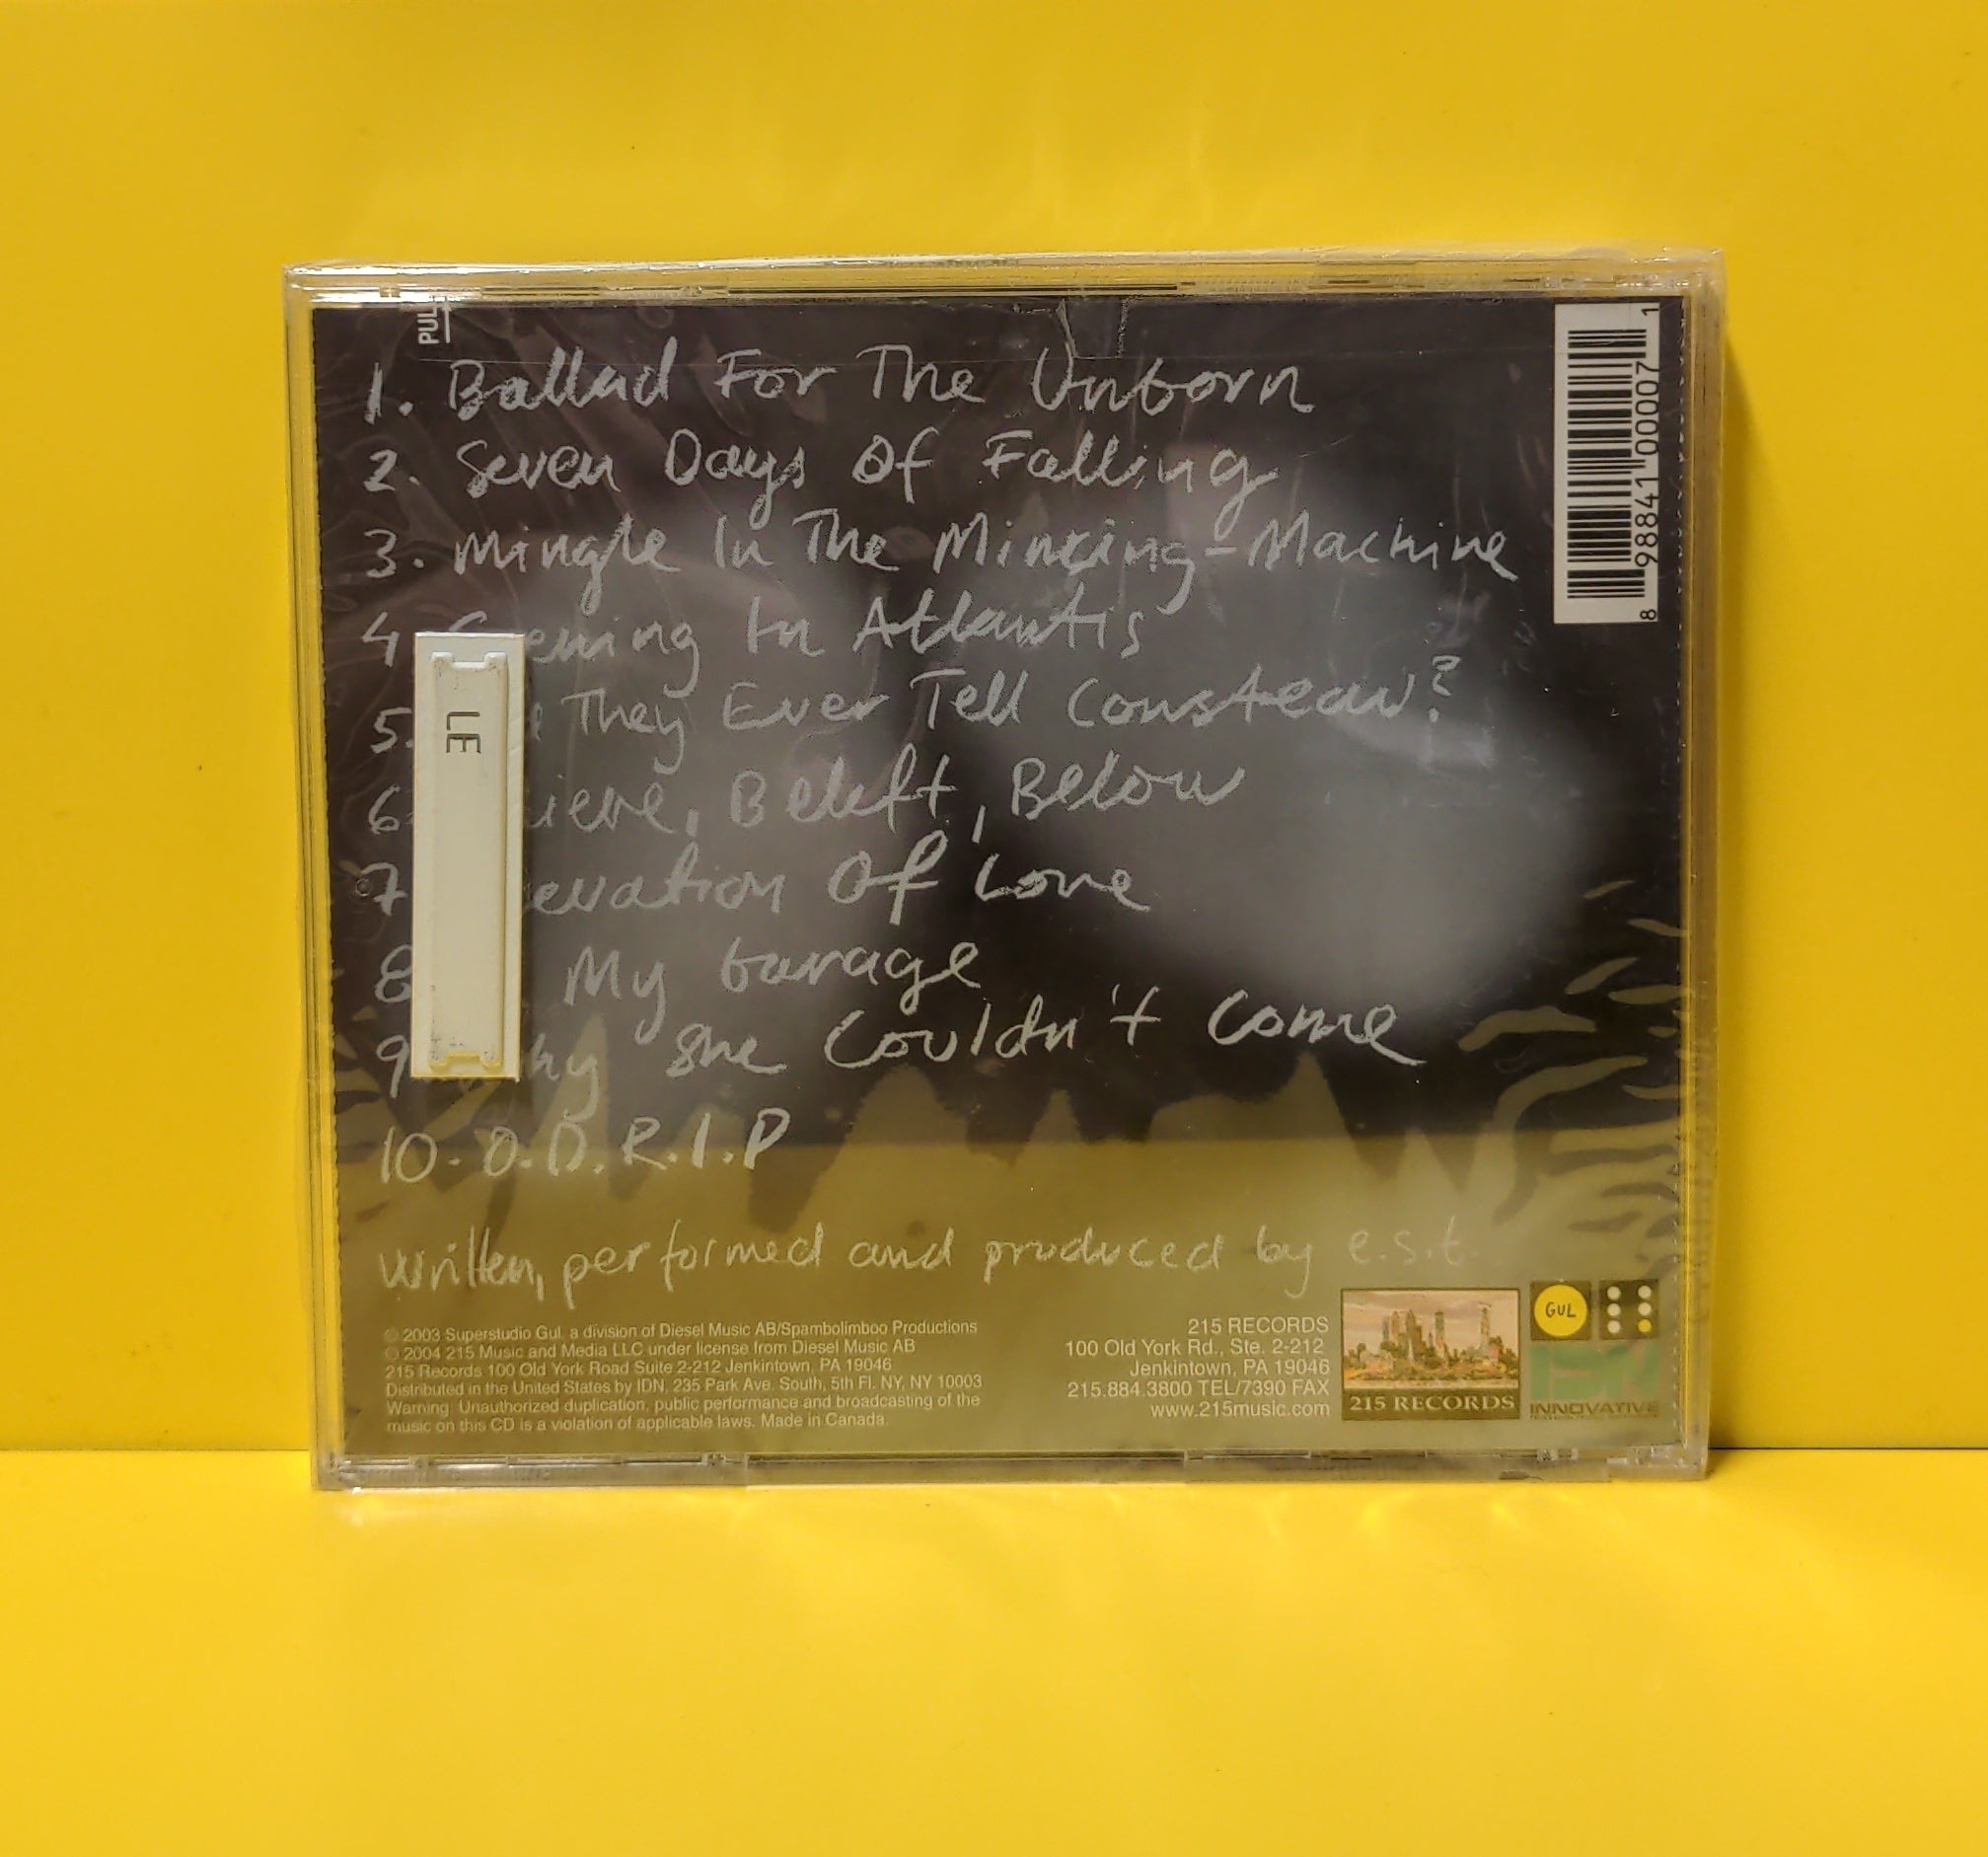 PUL
1. Ballad For The Unborn
2. Seven Days Of Falling
3. Mingle In The Mincing-Machine
4. In Atlantis
5. They Ever Tell Cousteau?
6. Beleft, Below
7 Of Love
8 My Garage
9 She Couldn't Come
10. O.D.R.I.P
written, performed and produced by e.s.t.
LE
8 98841 00007 1
© 2003 Superstudio Gul, a division of Diesel Music AB/Spambolimboo Productions
© 2004 215 Music and Media LLC under license from Diesel Music AB
215 Records 100 Old York Road Suite 2-212 Jenkintown, PA 19046
Distributed in the United States by IDN, 235 Park Ave. South, 5th Fl. NY, NY 10003
Warning: Unauthorized duplication, public performance and broadcasting of the
music on this CD is a violation of applicable laws. Made in Canada.
215 RECORDS
100 Old York Rd., Ste. 2-212
Jenkintown, PA 19046
215.884.3800 TEL/7390 FAX
www.215music.com
215 RECORDS
GUL
INNOVATIVE